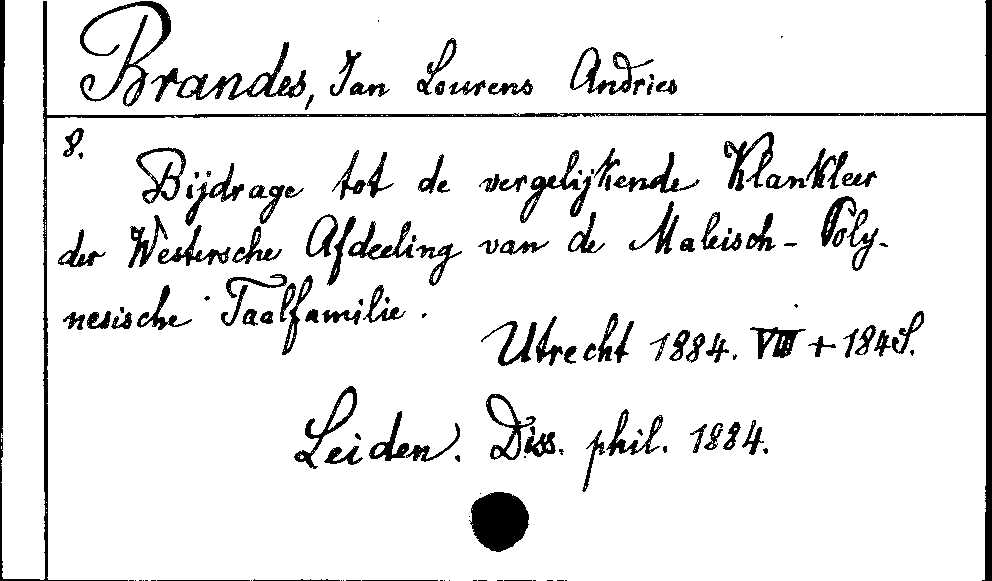 Brandes, Jan Lourens Andries
8.
Bijdrage tot de vergelijkende Klankleer
der Westersche Afdeeling van de Maleisch-Poly-
nesische Taalfamilie.
Utrecht 1884. VIII + 184 S.
Leiden. Diss. phil. 1884.